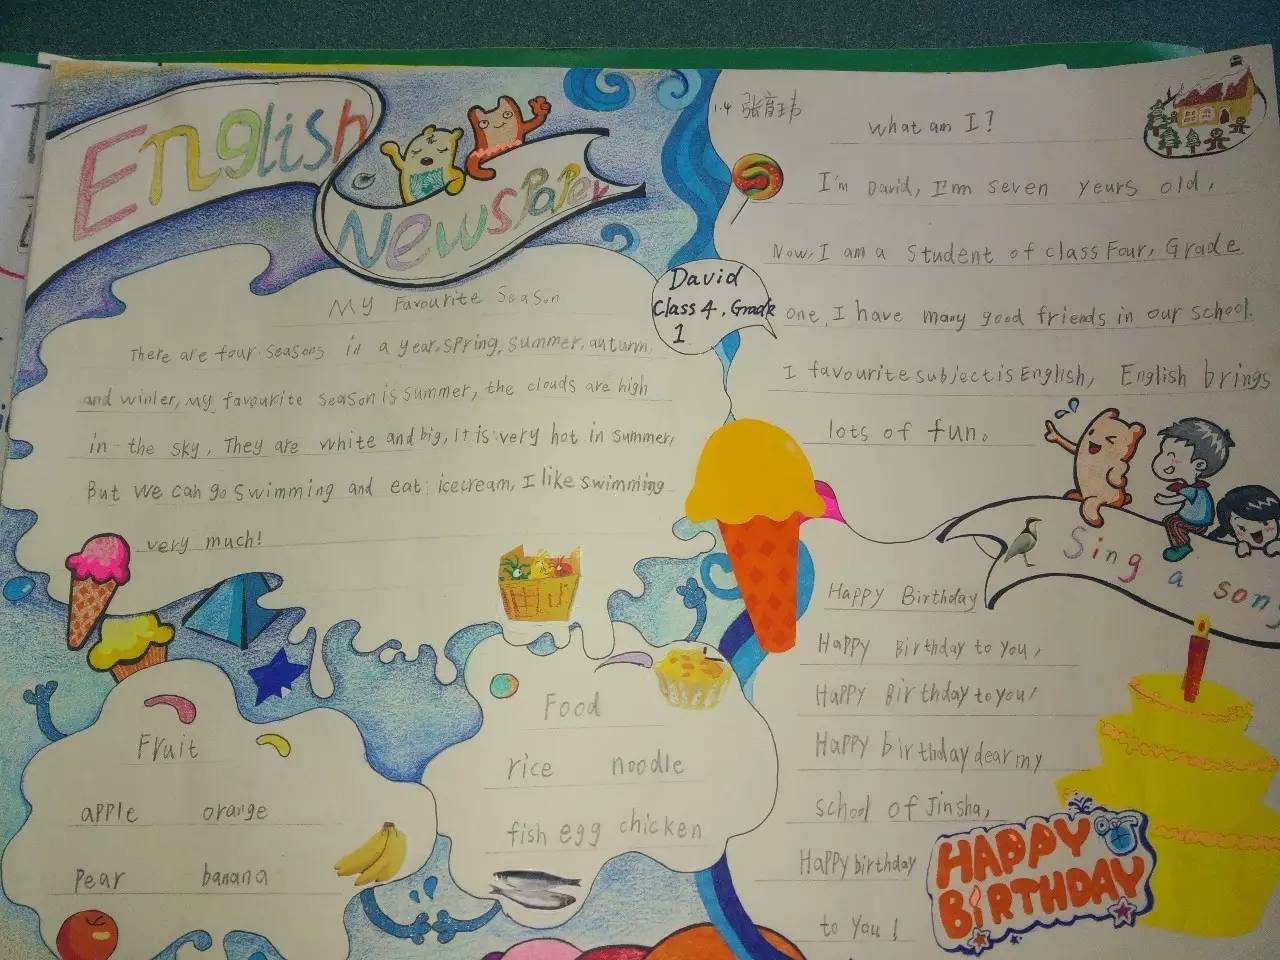 English
Newspaper
My Favourite Season
There are four seasons in a year, spring, summer, autumn
and winler, my favourite season is summer, the clouds are high
in the sky. They are white and big, it is very hot in summer,
But we can go swimming and eat icecream, I like swimming
very much!
Fruit
apple orange
pear banana
Food
rice noodle
fish egg chicken
1.4
David
Class 4, Grade
1
What am I?
I'm David, I'm seven yeurs old,
Now, I am a student of class Four, Grade
one, I have many good friends in our school.
I favourite subject is English, English brings
lots of fun.
Sing a song
Happy Birthday
Happy Birthday to you,
Happy Birthday to you!
Happy birthday dear my
school of Jinsha,
Happy birthday
to you!
HAPPY
BiRTHDAY